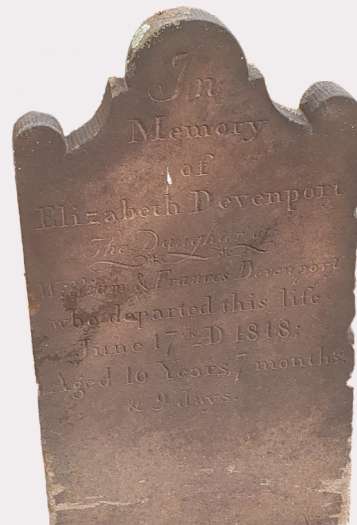 In
Memory
of
Elizabeth Devenport
The Daughter of
William & Francis Devenport
who departed this life
June 17th D 1818;
Aged 10 Years, 7 months,
& 9 days.